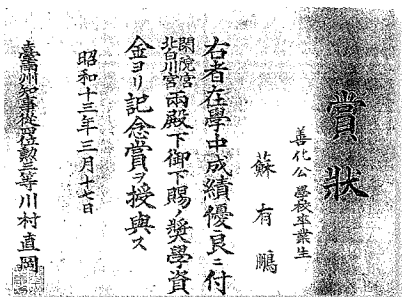 賞狀
善化公學校卒業生
蘇有鵬
右者在學中成績優良ニ付
閑院宮
北白川宮兩殿下御下賜ノ奬學資
金ヨリ記念賞ヲ授與ス
昭和十三年三月十七日
臺南州知事從四位勲三等川村直岡